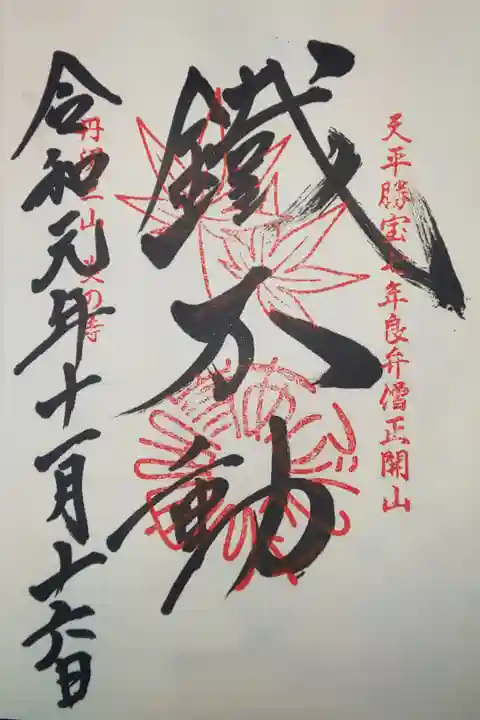 天平勝宝七年良弁僧正開山
鐵不動
令和元年十一月十六日